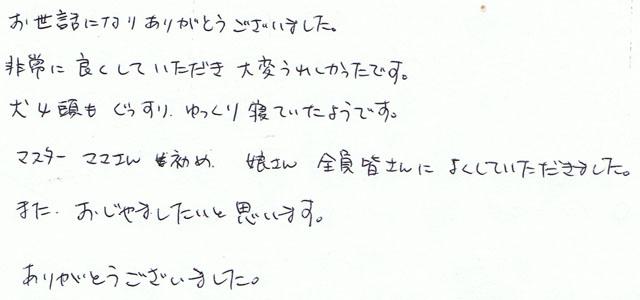 お世話になりありがとうございました。
非常に良くしていただき大変うれしかったです。
犬4頭もぐっすり.ゆっくり寝ていたようです。
マスター ママさん 初め. 娘さん 全員皆さんに よくしていただきました。
また.おじゃましたいと思います。
ありがとうございました。